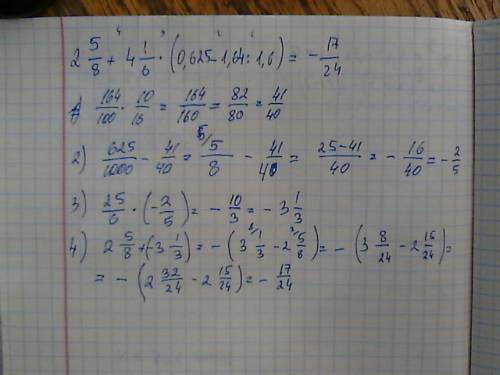 2 5/8 + 4 1/6 · (0,625 - 1,64 : 1,6) = - 17/24
1) 164/100 · 10/16 = 164/160 = 82/80 = 41/40
2) 625/1000 - 41/40 = 5/8 - 41/40 = 25-41/40 = - 16/40 = - 2/5
3) 25/6 · (- 2/5) = - 10/3 = - 3 1/3
4) 2 5/8 + (-3 1/3) = - (3 1/3 - 2 5/8) = - (3 8/24 - 2 15/24) =
= - (2 32/24 - 2 15/24) = - 17/24